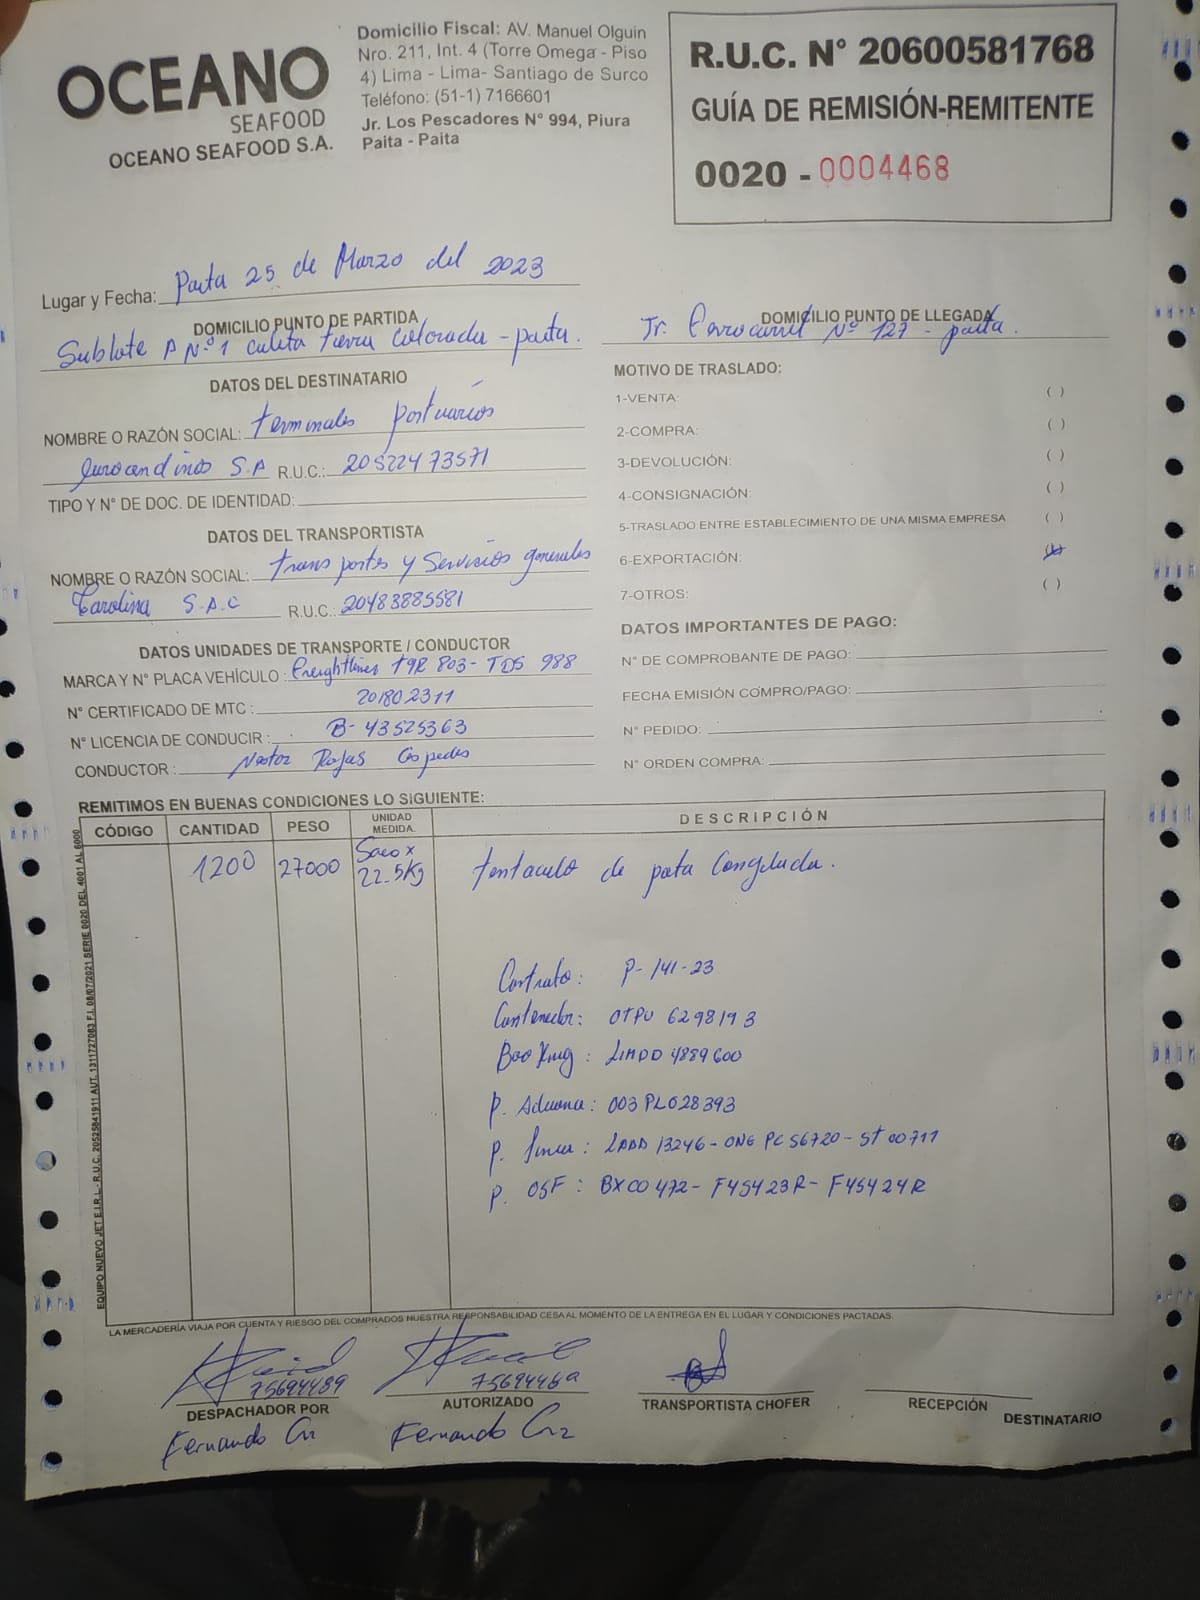 OCEANO
SEAFOOD
OCEANO SEAFOOD S.A.
Domicilio Fiscal: AV. Manuel Olguin
Nro. 211, Int. 4 (Torre Omega - Piso
4) Lima - Lima- Santiago de Surco
Teléfono: (51-1) 7166601
Jr. Los Pescadores N° 994, Piura
Paita - Paita
R.U.C. N° 20600581768
GUÍA DE REMISIÓN-REMITENTE
0020 - 0004468
Lugar y Fecha: Paita 25 de Marzo del 2023
DOMICILIO PUNTO DE PARTIDA
Sublote A N°1 caleta tierra Colorada - paita.
DOMICILIO PUNTO DE LLEGADA
Jr. Ferrocarril N° 127 - paita.
DATOS DEL DESTINATARIO
NOMBRE O RAZÓN SOCIAL: terminales portuarios
Euroandinos S.A R.U.C.: 20522473571
TIPO Y N° DE DOC. DE IDENTIDAD:
DATOS DEL TRANSPORTISTA
NOMBRE O RAZÓN SOCIAL: transportes y Servicios generales
Carolina S.A.C R.U.C.: 20483885581
DATOS UNIDADES DE TRANSPORTE / CONDUCTOR
MARCA Y N° PLACA VEHÍCULO : Freightliner T9R 803- TDS 988
N° CERTIFICADO DE MTC : 201802311
N° LICENCIA DE CONDUCIR : B- 43525363
CONDUCTOR : Nestor Rojas Cespedes
MOTIVO DE TRASLADO:
1-VENTA: ( )
2-COMPRA: ( )
3-DEVOLUCIÓN: ( )
4-CONSIGNACIÓN: ( )
5-TRASLADO ENTRE ESTABLECIMIENTO DE UNA MISMA EMPRESA ( )
6-EXPORTACIÓN: (x)
7-OTROS: ( )
DATOS IMPORTANTES DE PAGO:
N° DE COMPROBANTE DE PAGO:
FECHA EMISIÓN COMPRO/PAGO:
N° PEDIDO:
N° ORDEN COMPRA:
REMITIMOS EN BUENAS CONDICIONES LO SIGUIENTE:
CÓDIGO CANTIDAD PESO UNIDAD MEDIDA. DESCRIPCIÓN
1200 27000 Saco x 22.5Kg tentaculo de pota Congelada.
Contrato: P-141-23
Contenedor: OTPU 629819 3
Booking: LIMDD 4889600
P. Aduana: 003PL028393
P. Linea: LADD 13246- ONE PC 56720- St 00711
P. OSF: BXCO 472- F45423R- F45424R
EQUIPO NUEVO JET E.I.R.L.- R.U.C. 20525841911 AUT. 1311727063 F.I. 08/07/2021 SERIE 0020 DEL 4001 AL 6000
LA MERCADERÍA VIAJA POR CUENTA Y RIESGO DEL COMPRADOS NUESTRA RESPONSABILIDAD CESA AL MOMENTO DE LA ENTREGA EN EL LUGAR Y CONDICIONES PACTADAS.
75694489
DESPACHADOR POR
Fernando Cruz
AUTORIZADO
Fernando Cruz
TRANSPORTISTA CHOFER
RECEPCIÓN
DESTINATARIO